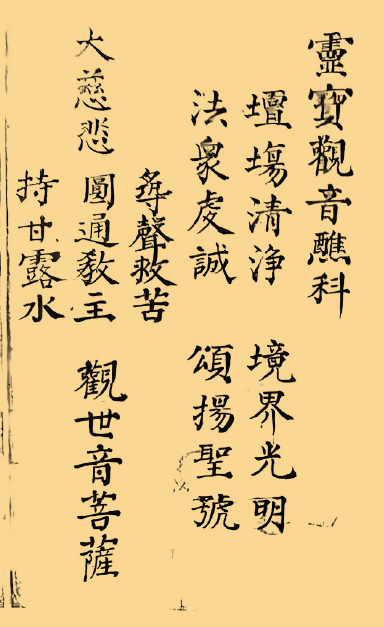 靈寶觀音醮科
壇塲清淨 境界光明
法衆虔誠 頌揚聖號
尋聲救苦
大慈悲 圓通敎主 觀世音菩薩
持甘露水